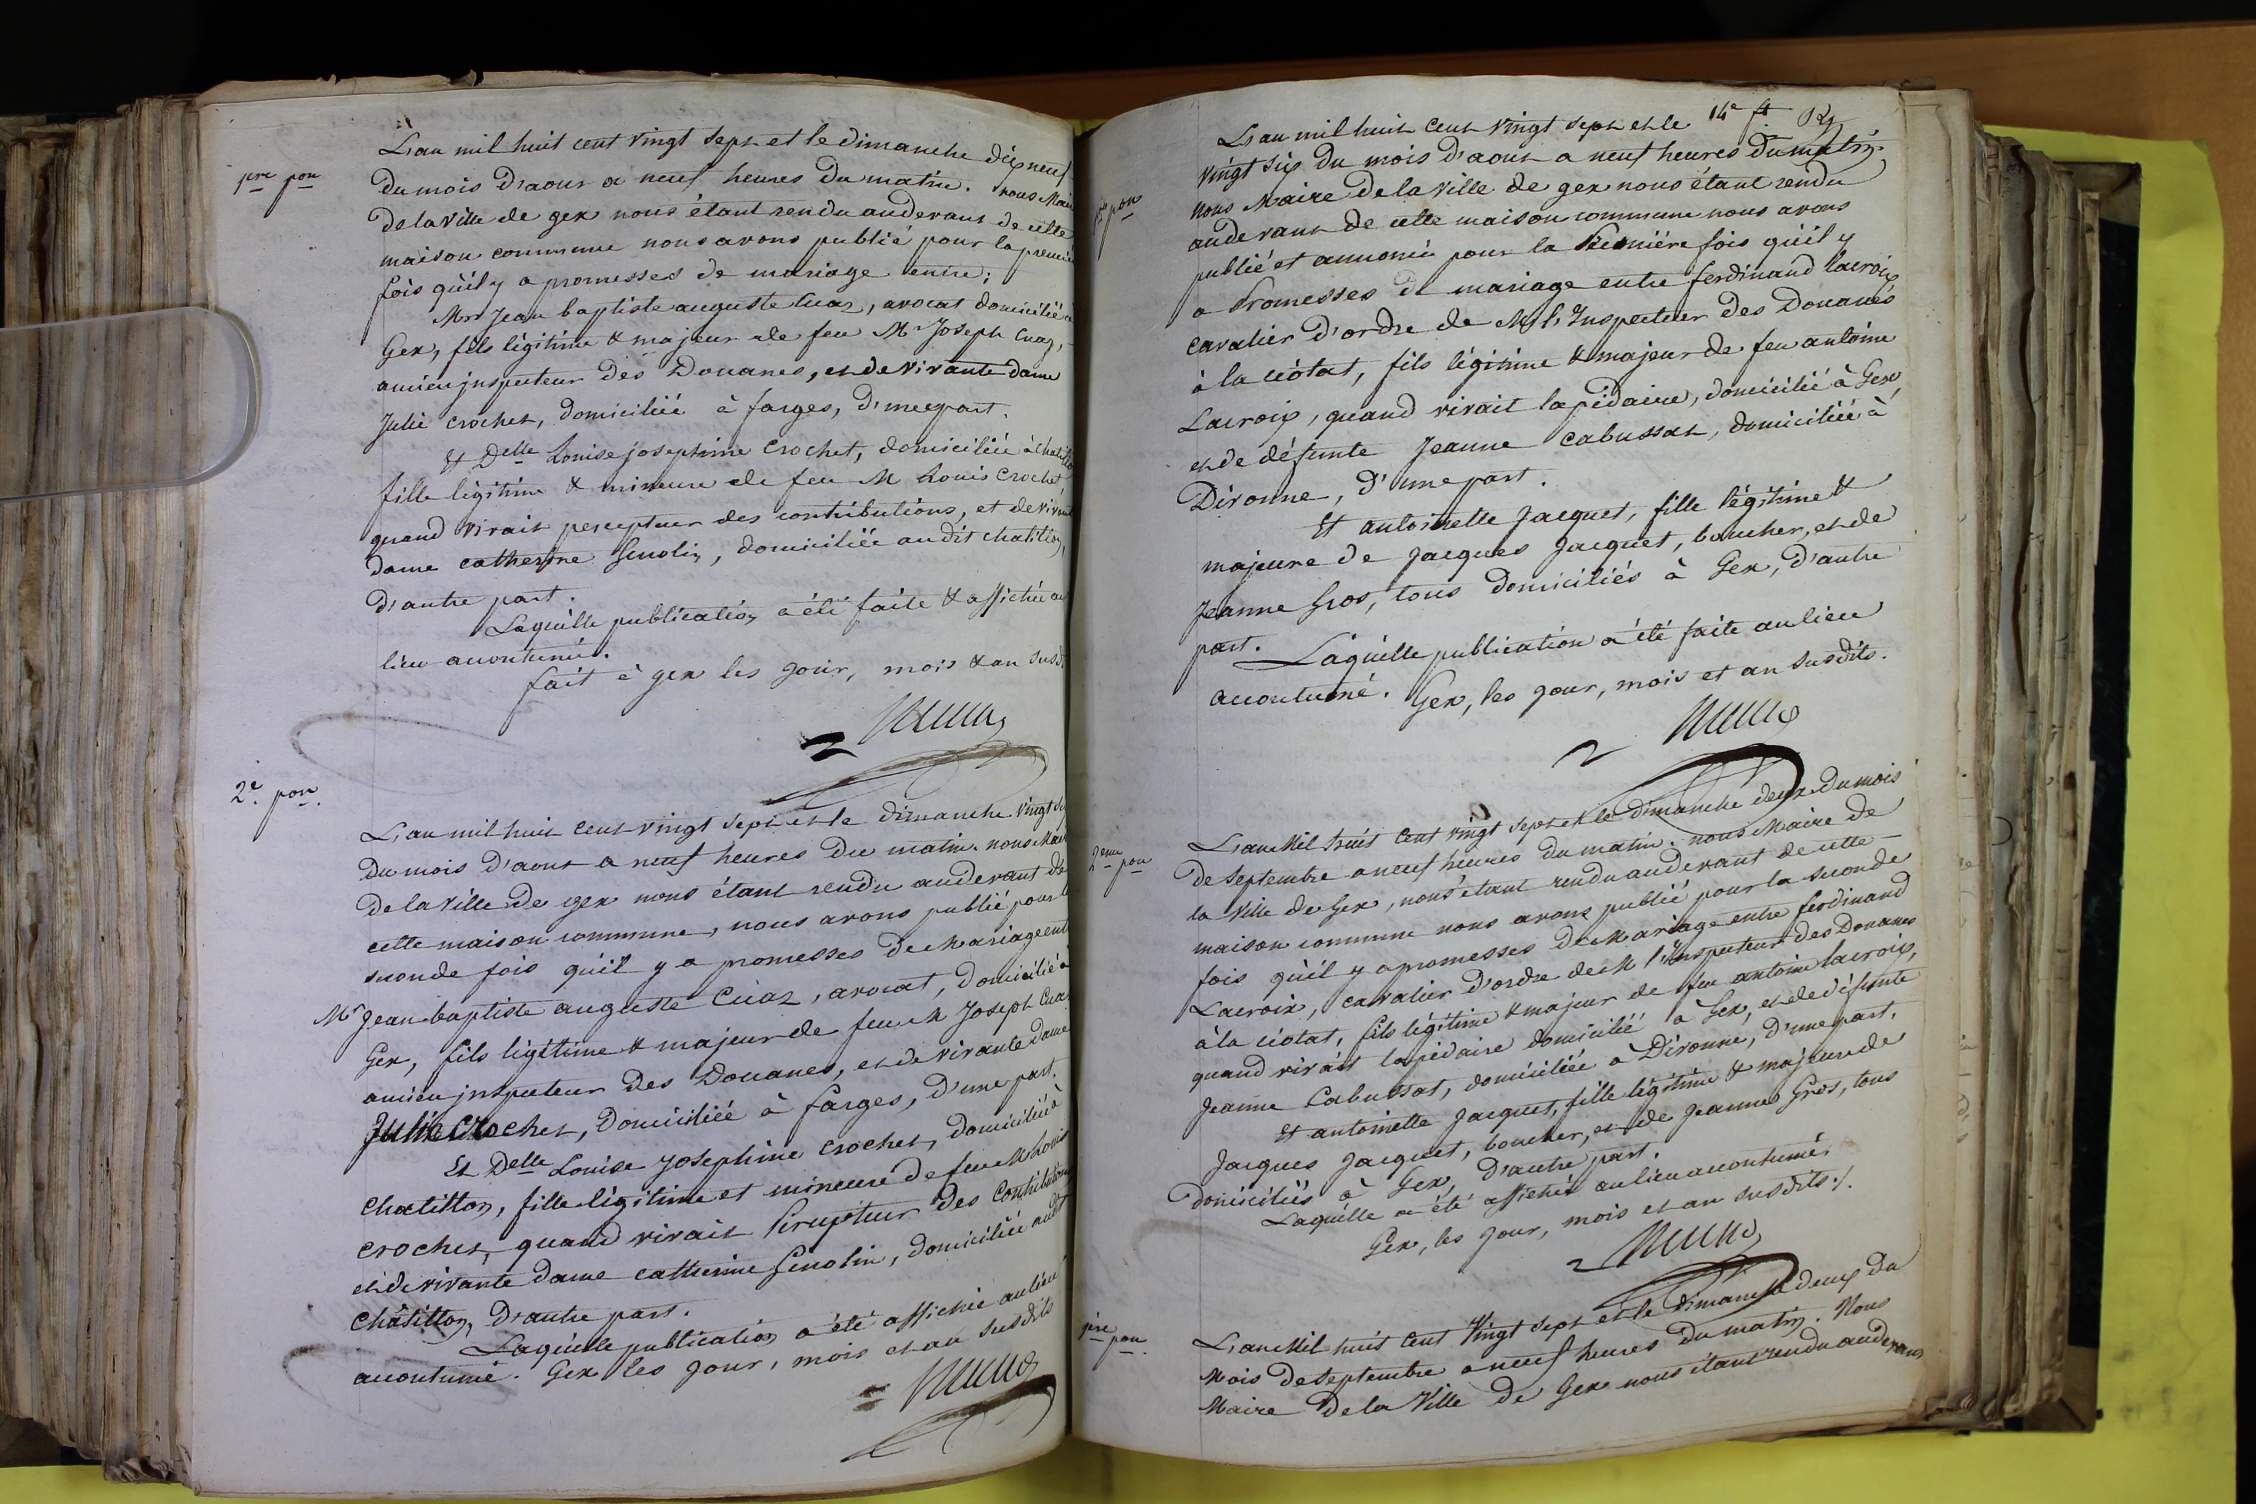 pre pon
L'an mil huit cent vingt sept et le dimanche dix neuf
du mois d'aout a neuf heures du matin. nous Mair
de la ville de gex nous étant rendu au devant de cette
maison commune nous avons publié pour la premiè
fois qu'il y a promesses de mariage entre;
Mr Jean baptiste auguste Cuaz, avocat domicilié à
Gex, fils légitime & majeur de feu Mr Joseph Cuaz,
ancien inspecteur des Douanes, et de vivante dame
Julie Crochet, domiciliée à farges, d'une part.
Et Delle Louise josephine Crochet, domiciliée à Chatillo
fille légitime & mineure de feu M Louis Crochet
quand vivait percepteur des contributions, et de vivan
dame catherine Genolin, domiciliée au dit chatillon,
d'autre part.
Laquelle publication a été faite & affichée au
lieu accoutumé.
fait à gex les jour, mois & an susd
2e pon.
L'an mil huit cent vingt sept et le dimanche vingt si
du mois d'aout a neuf heures du matin. nous Mai
de la ville de gex nous étant rendu au devant de
cette maison commune, nous avons publié pour l
seconde fois qu'il y a promesses de Mariage ent
Mr Jean baptiste auguste Cuaz, avocat, domicilié à
Gex, fils légitime & majeur de feu M Joseph Cua
ancien inspecteur des Douanes, et de vivante dame
Julie Crochet, Domiciliée à farges, d'une part.
Et Delle Louise Josephine Crochet, domiciliée à
Chatillon, fille légitime et mineure de feu M Louis
Crochet, quand vivait Percepteur des Contribution
et de vivante dame catherine Genolin, domiciliée audt
Châtillon, d'autre part.
Laquelle publication a été affichée au lieu
accoutumé. Gex les jour, mois et an susdits
14e ft.
1ère pon
L'an mil huit cent vingt sept et le
vingt six du mois d'aout a neuf heures du matin.
Nous Maire de la ville de gex nous étant rendu
au devant de cette maison commune nous avons
publié et annoncé pour la Première fois qu'il y
a Promesses de mariage entre ferdinand Lacroix
cavalier d'ordre de M l'Inspecteur des Douanes
à la ciotat, fils légitime & majeur de feu antoine
Lacroix, quand vivait lapidaire, domicilié à Gex
et de défunte Jeanne Cabussat, domiciliée à
Divonne, d'une part.
Et antoinette Jacquet, fille légitime &
majeure de Jacques Jacquet, boucher, et de
Jeanne Gros, tous domiciliés à Gex, d'autre
part.
Laquelle publication a été faite au lieu
accoutumé. Gex, les jour, mois et an susdits.
2eme pon
L'an Mil huit cent vingt sept et le dimanche deux du mois
de septembre a neuf heures du matin. nous Maire de
la ville de Gex, nous étant rendu au devant de cette
maison commune nous avons publié pour la seconde
fois qu'il y a promesses de Mariage entre ferdinand
Lacroix, cavalier d'ordre de M l'Inspecteur des Douanes
à la ciotat, fils légitime & majeur de feu antoine Lacroix,
quand vivait lapidaire domicilié à Gex, et de défunte
Jeanne Cabussat, domiciliée à Divonne, d'une part.
Et antoinette Jacquet, fille légitime & majeure de
Jacques Jacquet, boucher, et de Jeanne Gros, tous
domiciliés à Gex, d'autre part.
Laquelle a été affichée au lieu accoutumé.
Gex, les jour, mois et an susdits./.
1ère pon.
L'an Mil huit cent Vingt sept et le dimanche deux du
Mois de septembre a neuf heures du matin. Nous
Maire de la Ville de Gex nous étant rendu au devant